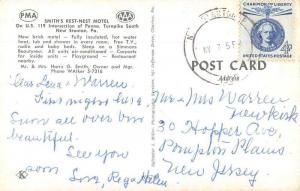 PMA
AAA
SMITH'S REST-NEST MOTEL
On U.S. 119 Intersection of Penna. Turnpike South
New Stanton, Pa.
New brick motel — Fully insulated, hot water
heat, tub and showers in every room. Free T.V.,
radio and baby beds. Sleep on a Simmons
Beautyrest. All units air-conditioned and in-
sulated. Restaurant.
Mr. & Mrs. Harry G. Smith, Owner and Mgr.
Phone WAlker 5-7216
CHAMPION OF LIBERTY
4¢
UNITED STATES POSTAGE
POST CARD
Address
Dear Lena & Warren
Sun all over
beautiful.
See you
soon
Love, Reg & Helen
Mr & Mrs Warren
Newkirk
30 Hopper Ave
Pompton Plains
New Jersey.